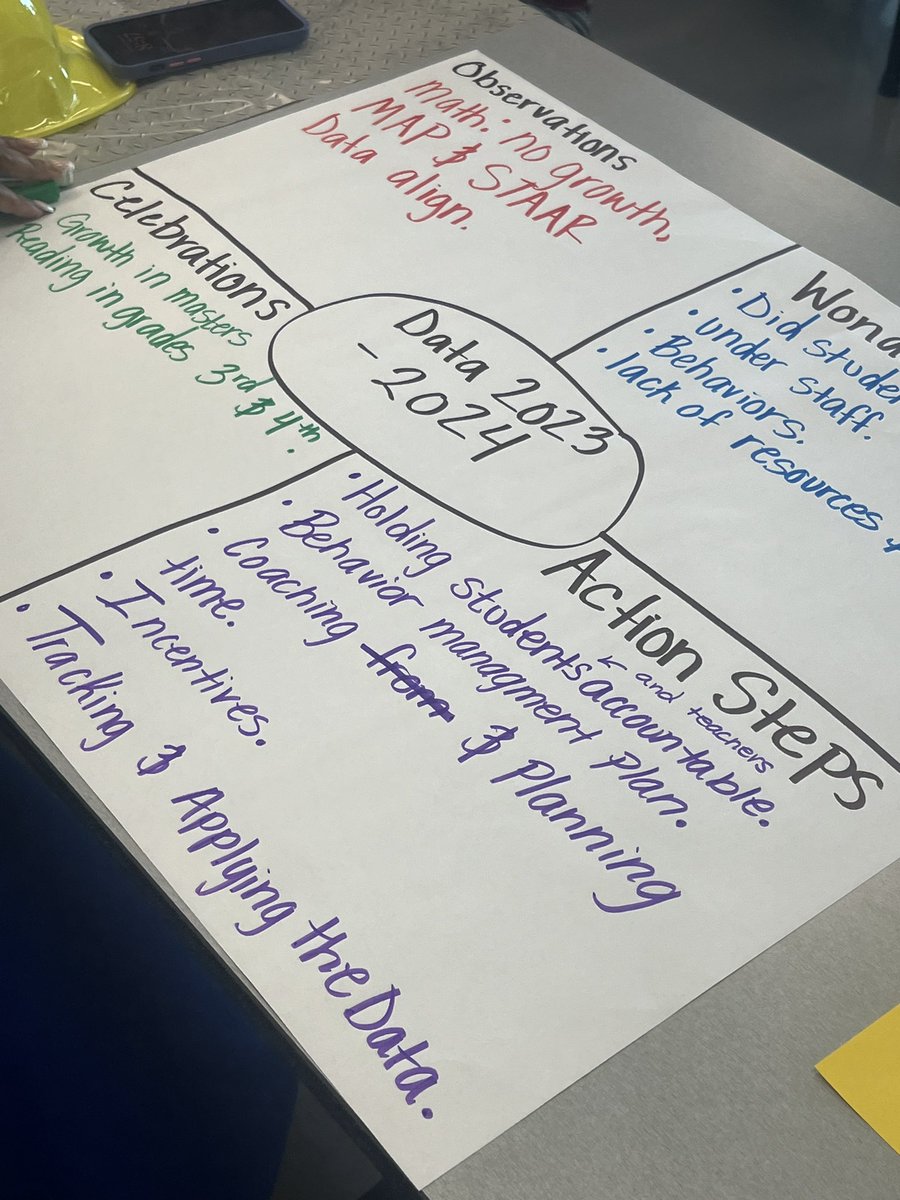 Observations
Math: no growth,
MAP & STAAR
Data align.
Celebrations
Growth in masters
Reading in grades 3rd & 4th.
Data 2023
- 2024
• Did
• under staff.
• Behaviors.
• lack of resources
Action Steps
• Holding students accountable.
and teachers
• Behavior managment plan.
• Coaching from & Planning
time.
• Incentives.
• Tracking & Applying the Data.